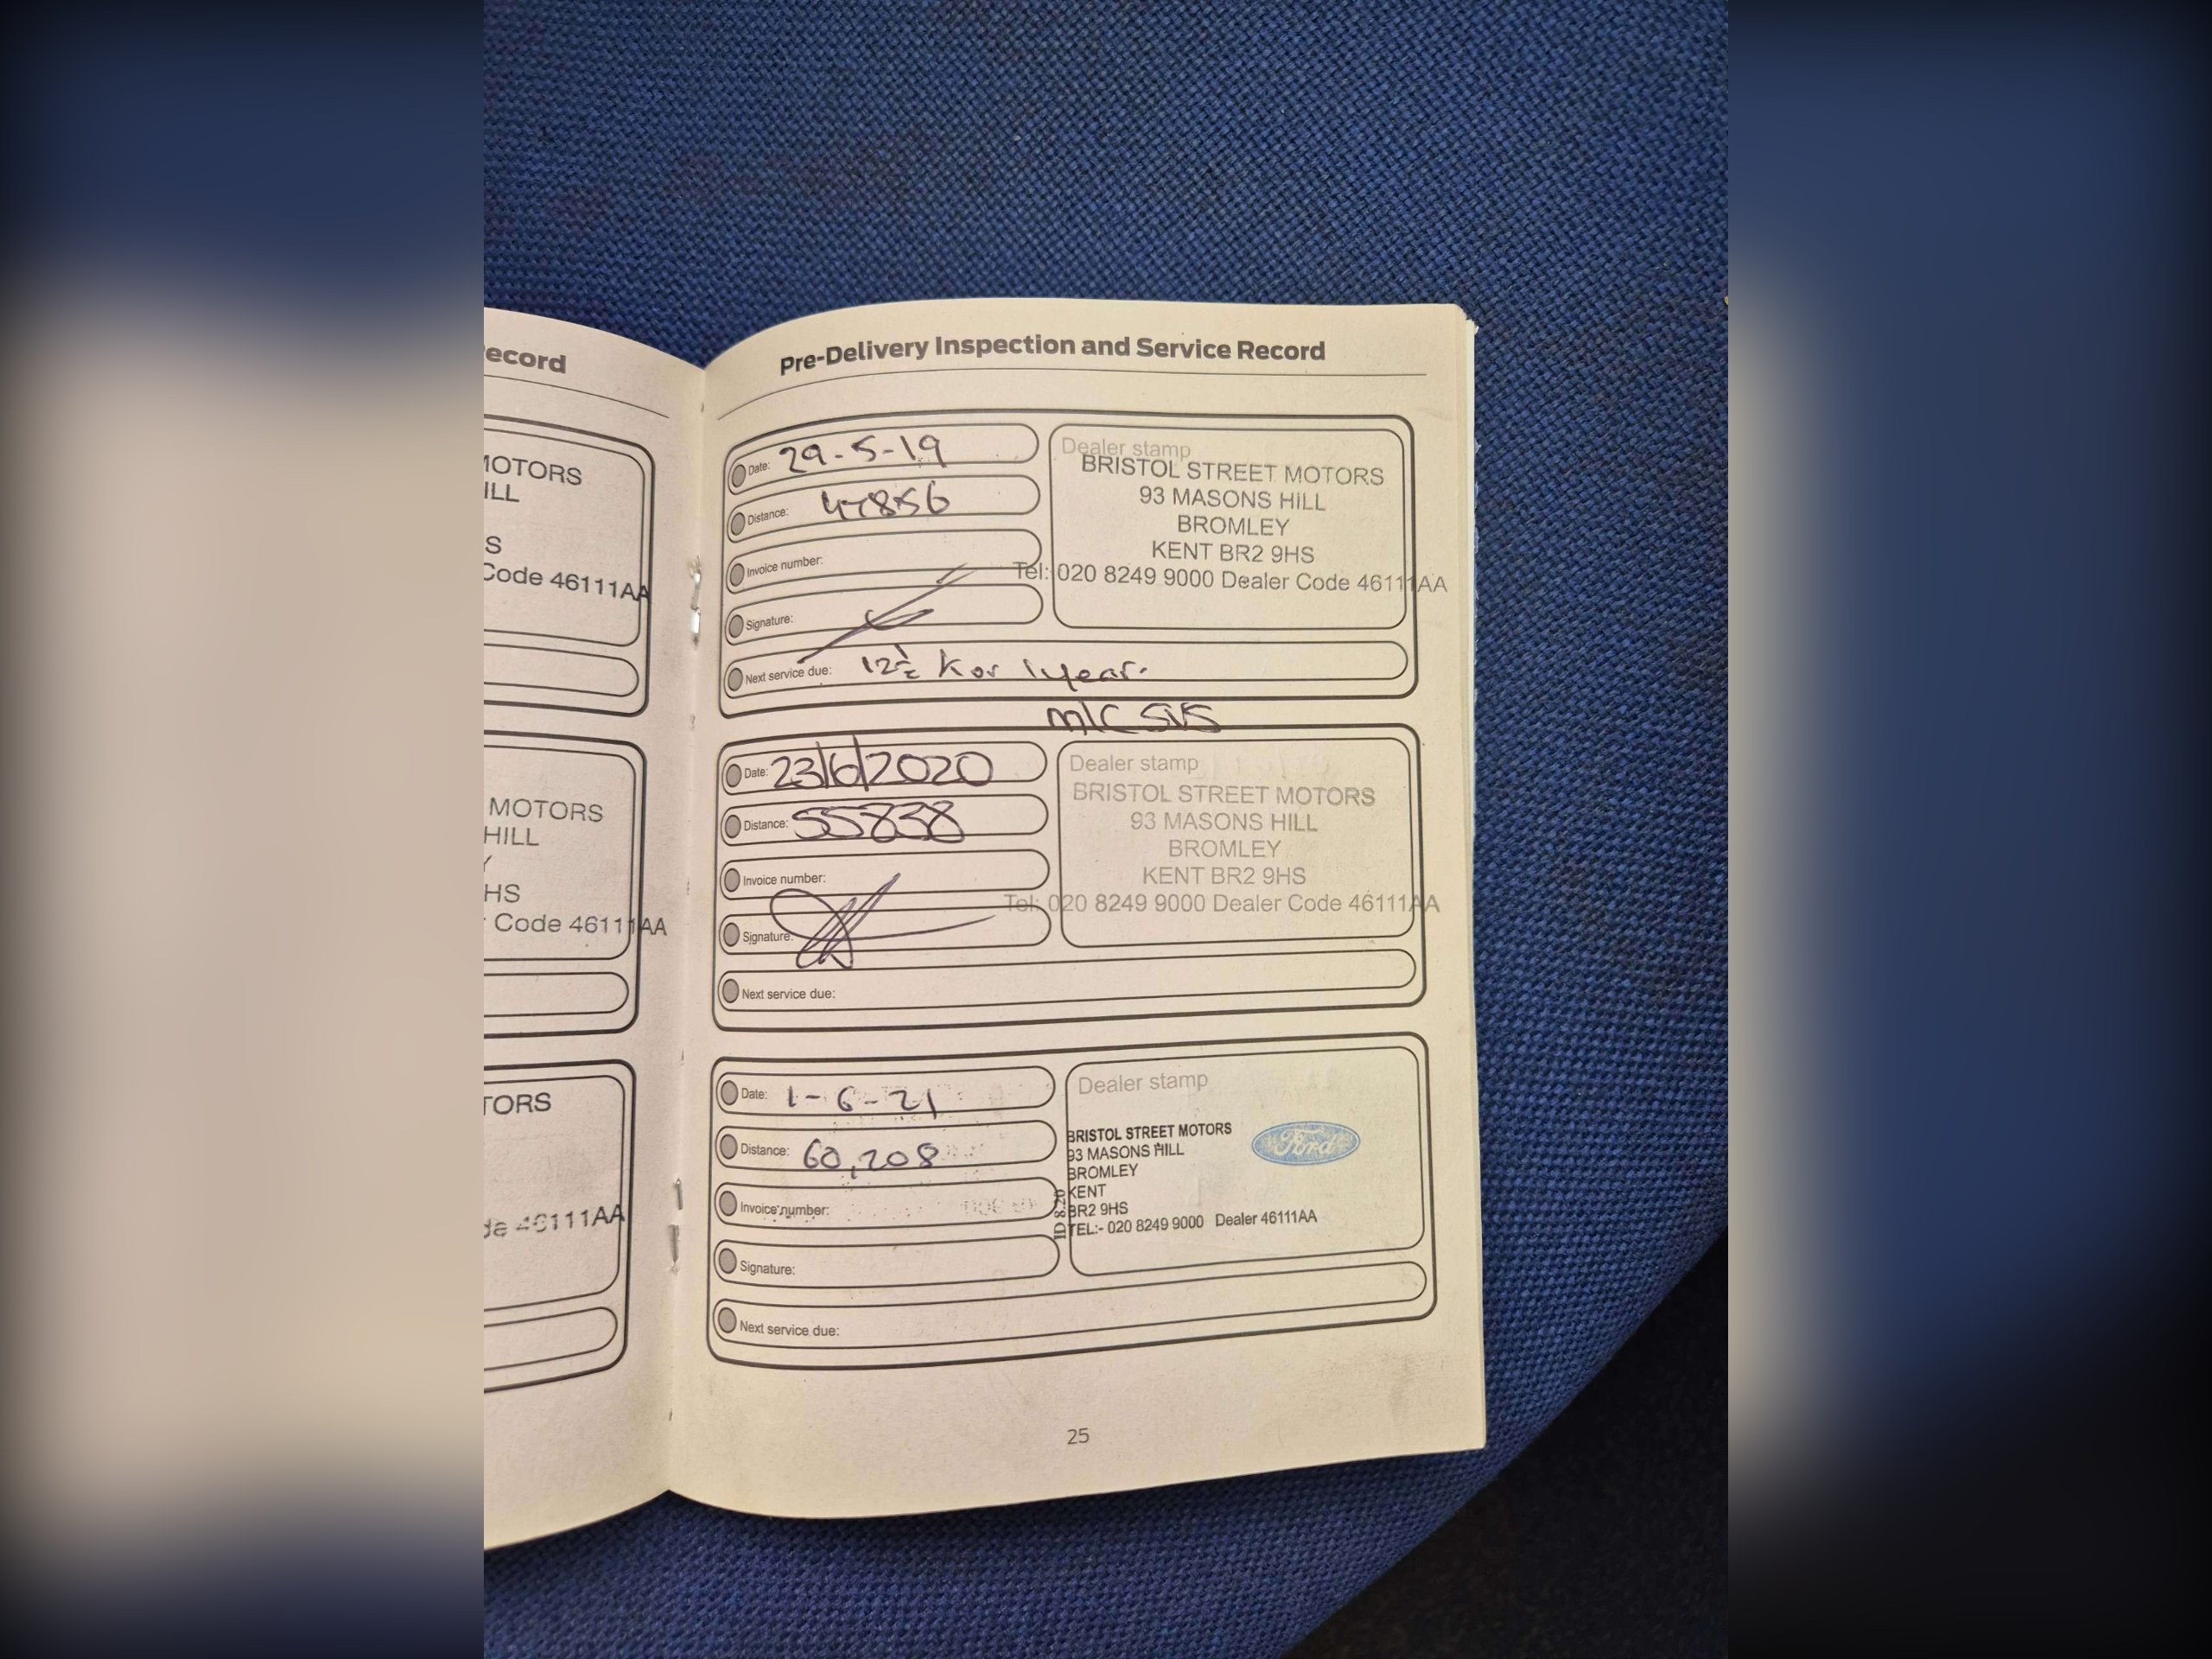 ecord
MOTORS
ILL
S
Code 46111AA
MOTORS
HILL
Y
HS
Code 46111AA
TORS
de 46111AA
Pre-Delivery Inspection and Service Record
Date: 29-5-19
Distance: 47856
Invoice number:
Signature:
Next service due: 12½ K or 1 year.
Dealer stamp
BRISTOL STREET MOTORS
93 MASONS HILL
BROMLEY
KENT BR2 9HS
Tel: 020 8249 9000 Dealer Code 46111AA
M/C SVS
Date: 23/6/2020
Distance: 55838
Invoice number:
Signature:
Next service due:
Dealer stamp
BRISTOL STREET MOTORS
93 MASONS HILL
BROMLEY
KENT BR2 9HS
Tel: 020 8249 9000 Dealer Code 46111AA
Date: 1-6-21
Distance: 60,208
Invoice number:
Signature:
Next service due:
Dealer stamp
BRISTOL STREET MOTORS
93 MASONS HILL
BROMLEY
KENT
BR2 9HS
TEL:- 020 8249 9000 Dealer 46111AA
Ford
25